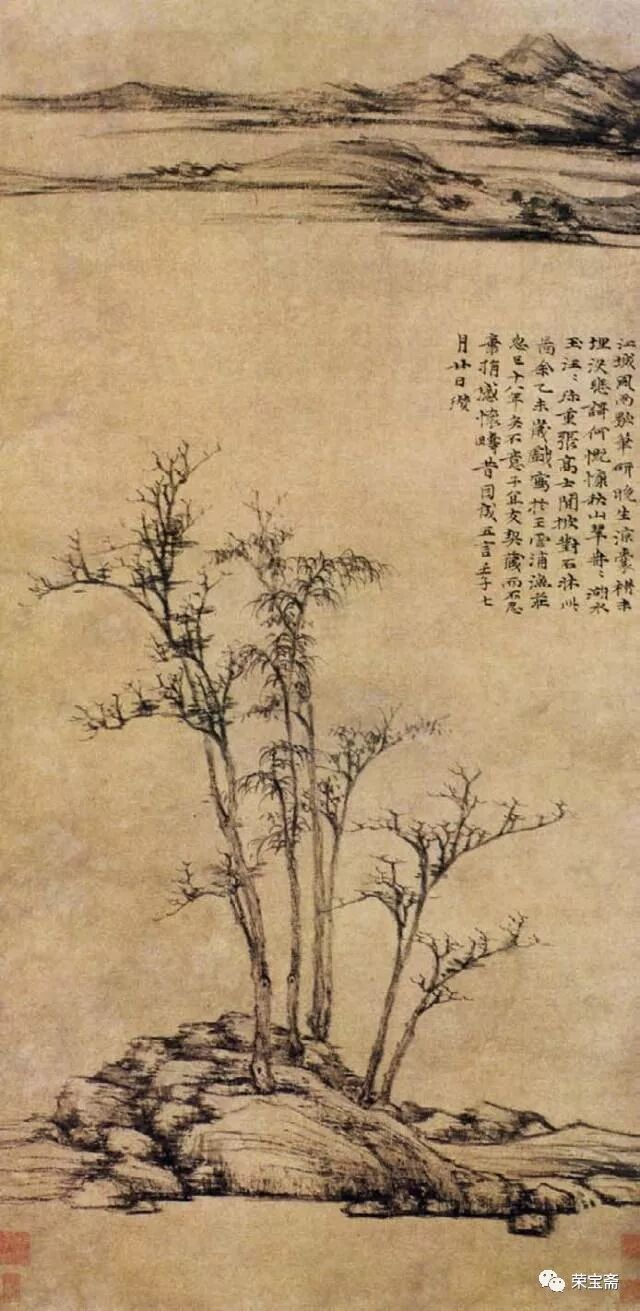 江城風雨歇筆研晚生涼囊楮未
埋没悲謌何慨慷秋山翠冉〻湖水
玉汪〻珍重張高士閒披對石牀此
啚余乙未歲戲寫於王雲浦漁莊
忽已十八年矣不意子宜友契藏而不忍
棄捐感懷疇昔因成五言壬子七
月廿日瓚
荣宝斋